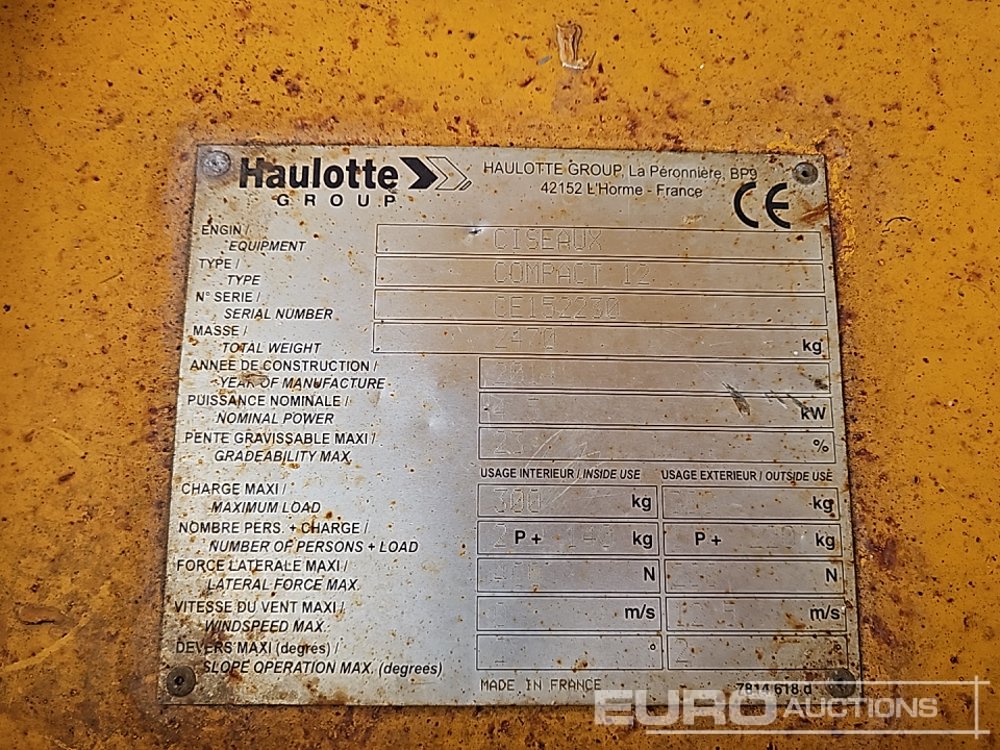 Haulotte
GROUP
HAULOTTE GROUP, La Péronnière, BP9
42152 L'Horme - France
CE
ENGIN /
EQUIPMENT
CISEAUX
TYPE /
TYPE
COMPACT 12
N° SERIE /
SERIAL NUMBER
CE152230
MASSE /
TOTAL WEIGHT
2470 kg
ANNEE DE CONSTRUCTION /
YEAR OF MANUFACTURE
PUISSANCE NOMINALE /
NOMINAL POWER
kW
PENTE GRAVISSABLE MAXI /
GRADEABILITY MAX.
23 %
USAGE INTERIEUR / INSIDE USE USAGE EXTERIEUR / OUTSIDE USE
CHARGE MAXI /
MAXIMUM LOAD
300 kg kg
NOMBRE PERS. + CHARGE /
NUMBER OF PERSONS + LOAD
2 P + 140 kg P + kg
FORCE LATERALE MAXI /
LATERAL FORCE MAX.
N N
VITESSE DU VENT MAXI /
WINDSPEED MAX.
m/s m/s
DEVERS MAXI (degrés) /
SLOPE OPERATION MAX. (degrees)
° 2 °
MADE IN FRANCE 7814 618 d
EURO AUCTIONS